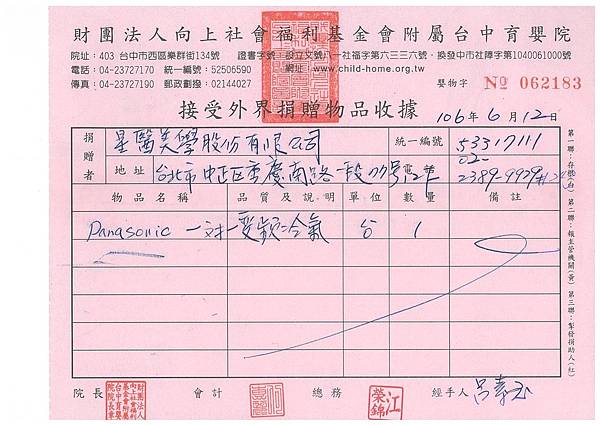 財團法人向上社會福利基金會附屬台中育嬰院
院址：403 台中市西區樂群街134號 證書字號：設立文號八一社福字第六三三六號、換發中市社障字第1040061000號
電話：04-23727170 統一編號：52506590 網址：www.child-home.org.tw
傳真：04-23727190 郵政劃撥：02144027 嬰物字 № 062183
接受外界捐贈物品收據 106年6月12日
捐贈者 星醫美學股份有限公司 統一編號 53317111
地址 台北市中正區重慶南路一段77號12F 電話 02-
2389-9929#24
物品名稱 品質及說明 單位 數量 備註
Panasonic 一對一變頻冷氣 台 1
第一聯：存根(白) 第二聯：報主管機關(黃) 第三聯：掣發捐助人(紅)
院長 財團法人向上社會福利基金會附屬台中育嬰院院長章 會計 總務 江榮錦 經手人